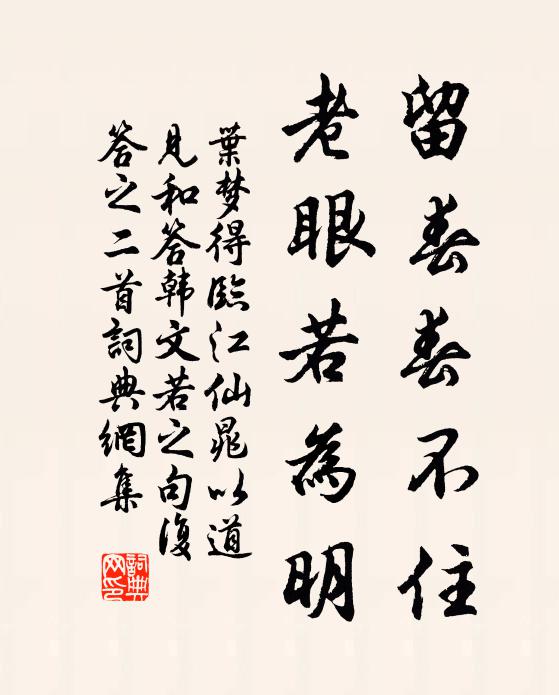 留春春不住
老眼若為明
葉梦得臨江仙晁以道
見和答韩文若之句復
答之二首詞典網集
詞典
网印